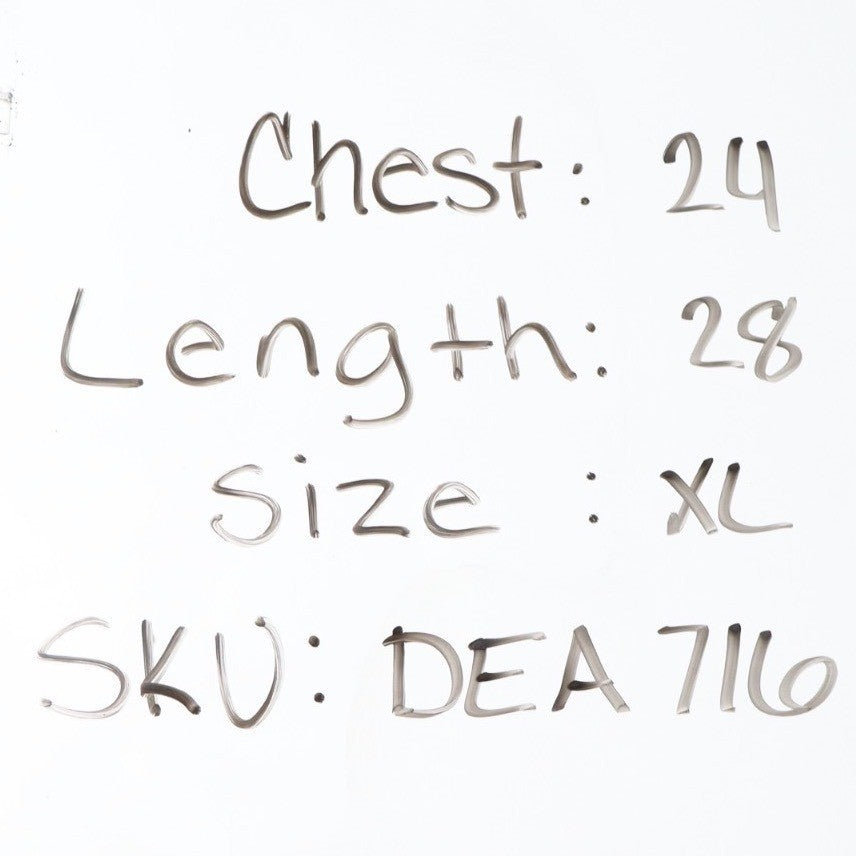 Chest: 24
Length: 28
Size : XL
SKU: DEA 716